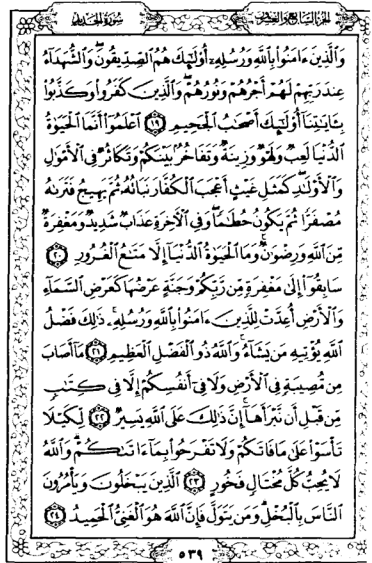 سورة الحديد
الجزء السابع والعشرون
وَٱلَّذِينَ ءَامَنُوا۟ بِٱللَّهِ وَرُسُلِهِۦٓ أُو۟لَٰٓئِكَ هُمُ ٱلصِّدِّيقُونَ ۖ وَٱلشُّهَدَآءُ
عِندَ رَبِّهِمْ لَهُمْ أَجْرُهُمْ وَنُورُهُمْ ۖ وَٱلَّذِينَ كَفَرُوا۟ وَكَذَّبُوا۟
بِـَٔايَٰتِنَآ أُو۟لَٰٓئِكَ أَصْحَٰبُ ٱلْجَحِيمِ ١٩ ٱعْلَمُوٓا۟ أَنَّمَا ٱلْحَيَوٰةُ
ٱلدُّنْيَا لَعِبٌ وَلَهْوٌ وَزِينَةٌ وَتَفَاخُرٌۢ بَيْنَكُمْ وَتَكَاثُرٌ فِى ٱلْأَمْوَٰلِ
وَٱلْأَوْلَٰدِ ۖ كَمَثَلِ غَيْثٍ أَعْجَبَ ٱلْكُفَّارَ نَبَاتُهُۥ ثُمَّ يَهِيجُ فَتَرَىٰهُ
مُصْفَرًّا ثُمَّ يَكُونُ حُطَٰمًا ۖ وَفِى ٱلْءَاخِرَةِ عَذَابٌ شَدِيدٌ وَمَغْفِرَةٌ
مِّنَ ٱللَّهِ وَرِضْوَٰنٌ ۚ وَمَا ٱلْحَيَوٰةُ ٱلدُّنْيَآ إِلَّا مَتَٰعُ ٱلْغُرُورِ ٢٠
سَابِقُوٓا۟ إِلَىٰ مَغْفِرَةٍ مِّن رَّبِّكُمْ وَجَنَّةٍ عَرْضُهَا كَعَرْضِ ٱلسَّمَآءِ
وَٱلْأَرْضِ أُعِدَّتْ لِلَّذِينَ ءَامَنُوا۟ بِٱللَّهِ وَرُسُلِهِۦ ۚ ذَٰلِكَ فَضْلُ
ٱللَّهِ يُؤْتِيهِ مَن يَشَآءُ ۚ وَٱللَّهُ ذُو ٱلْفَضْلِ ٱلْعَظِيمِ ٢١ مَآ أَصَابَ
مِن مُّصِيبَةٍ فِى ٱلْأَرْضِ وَلَا فِىٓ أَنفُسِكُمْ إِلَّا فِى كِتَٰبٍ
مِّن قَبْلِ أَن نَّبْرَأَهَآ ۚ إِنَّ ذَٰلِكَ عَلَى ٱللَّهِ يَسِيرٌ ٢٢ لِّكَيْلَا
تَأْسَوْا۟ عَلَىٰ مَا فَاتَكُمْ وَلَا تَفْرَحُوا۟ بِمَآ ءَاتَىٰكُمْ ۗ وَٱللَّهُ
لَا يُحِبُّ كُلَّ مُخْتَالٍ فَخُورٍ ٢٣ ٱلَّذِينَ يَبْخَلُونَ وَيَأْمُرُونَ
ٱلنَّاسَ بِٱلْبُخْلِ ۗ وَمَن يَتَوَلَّ فَإِنَّ ٱللَّهَ هُوَ ٱلْغَنِىُّ ٱلْحَمِيدُ ٢٤
٥٣٩